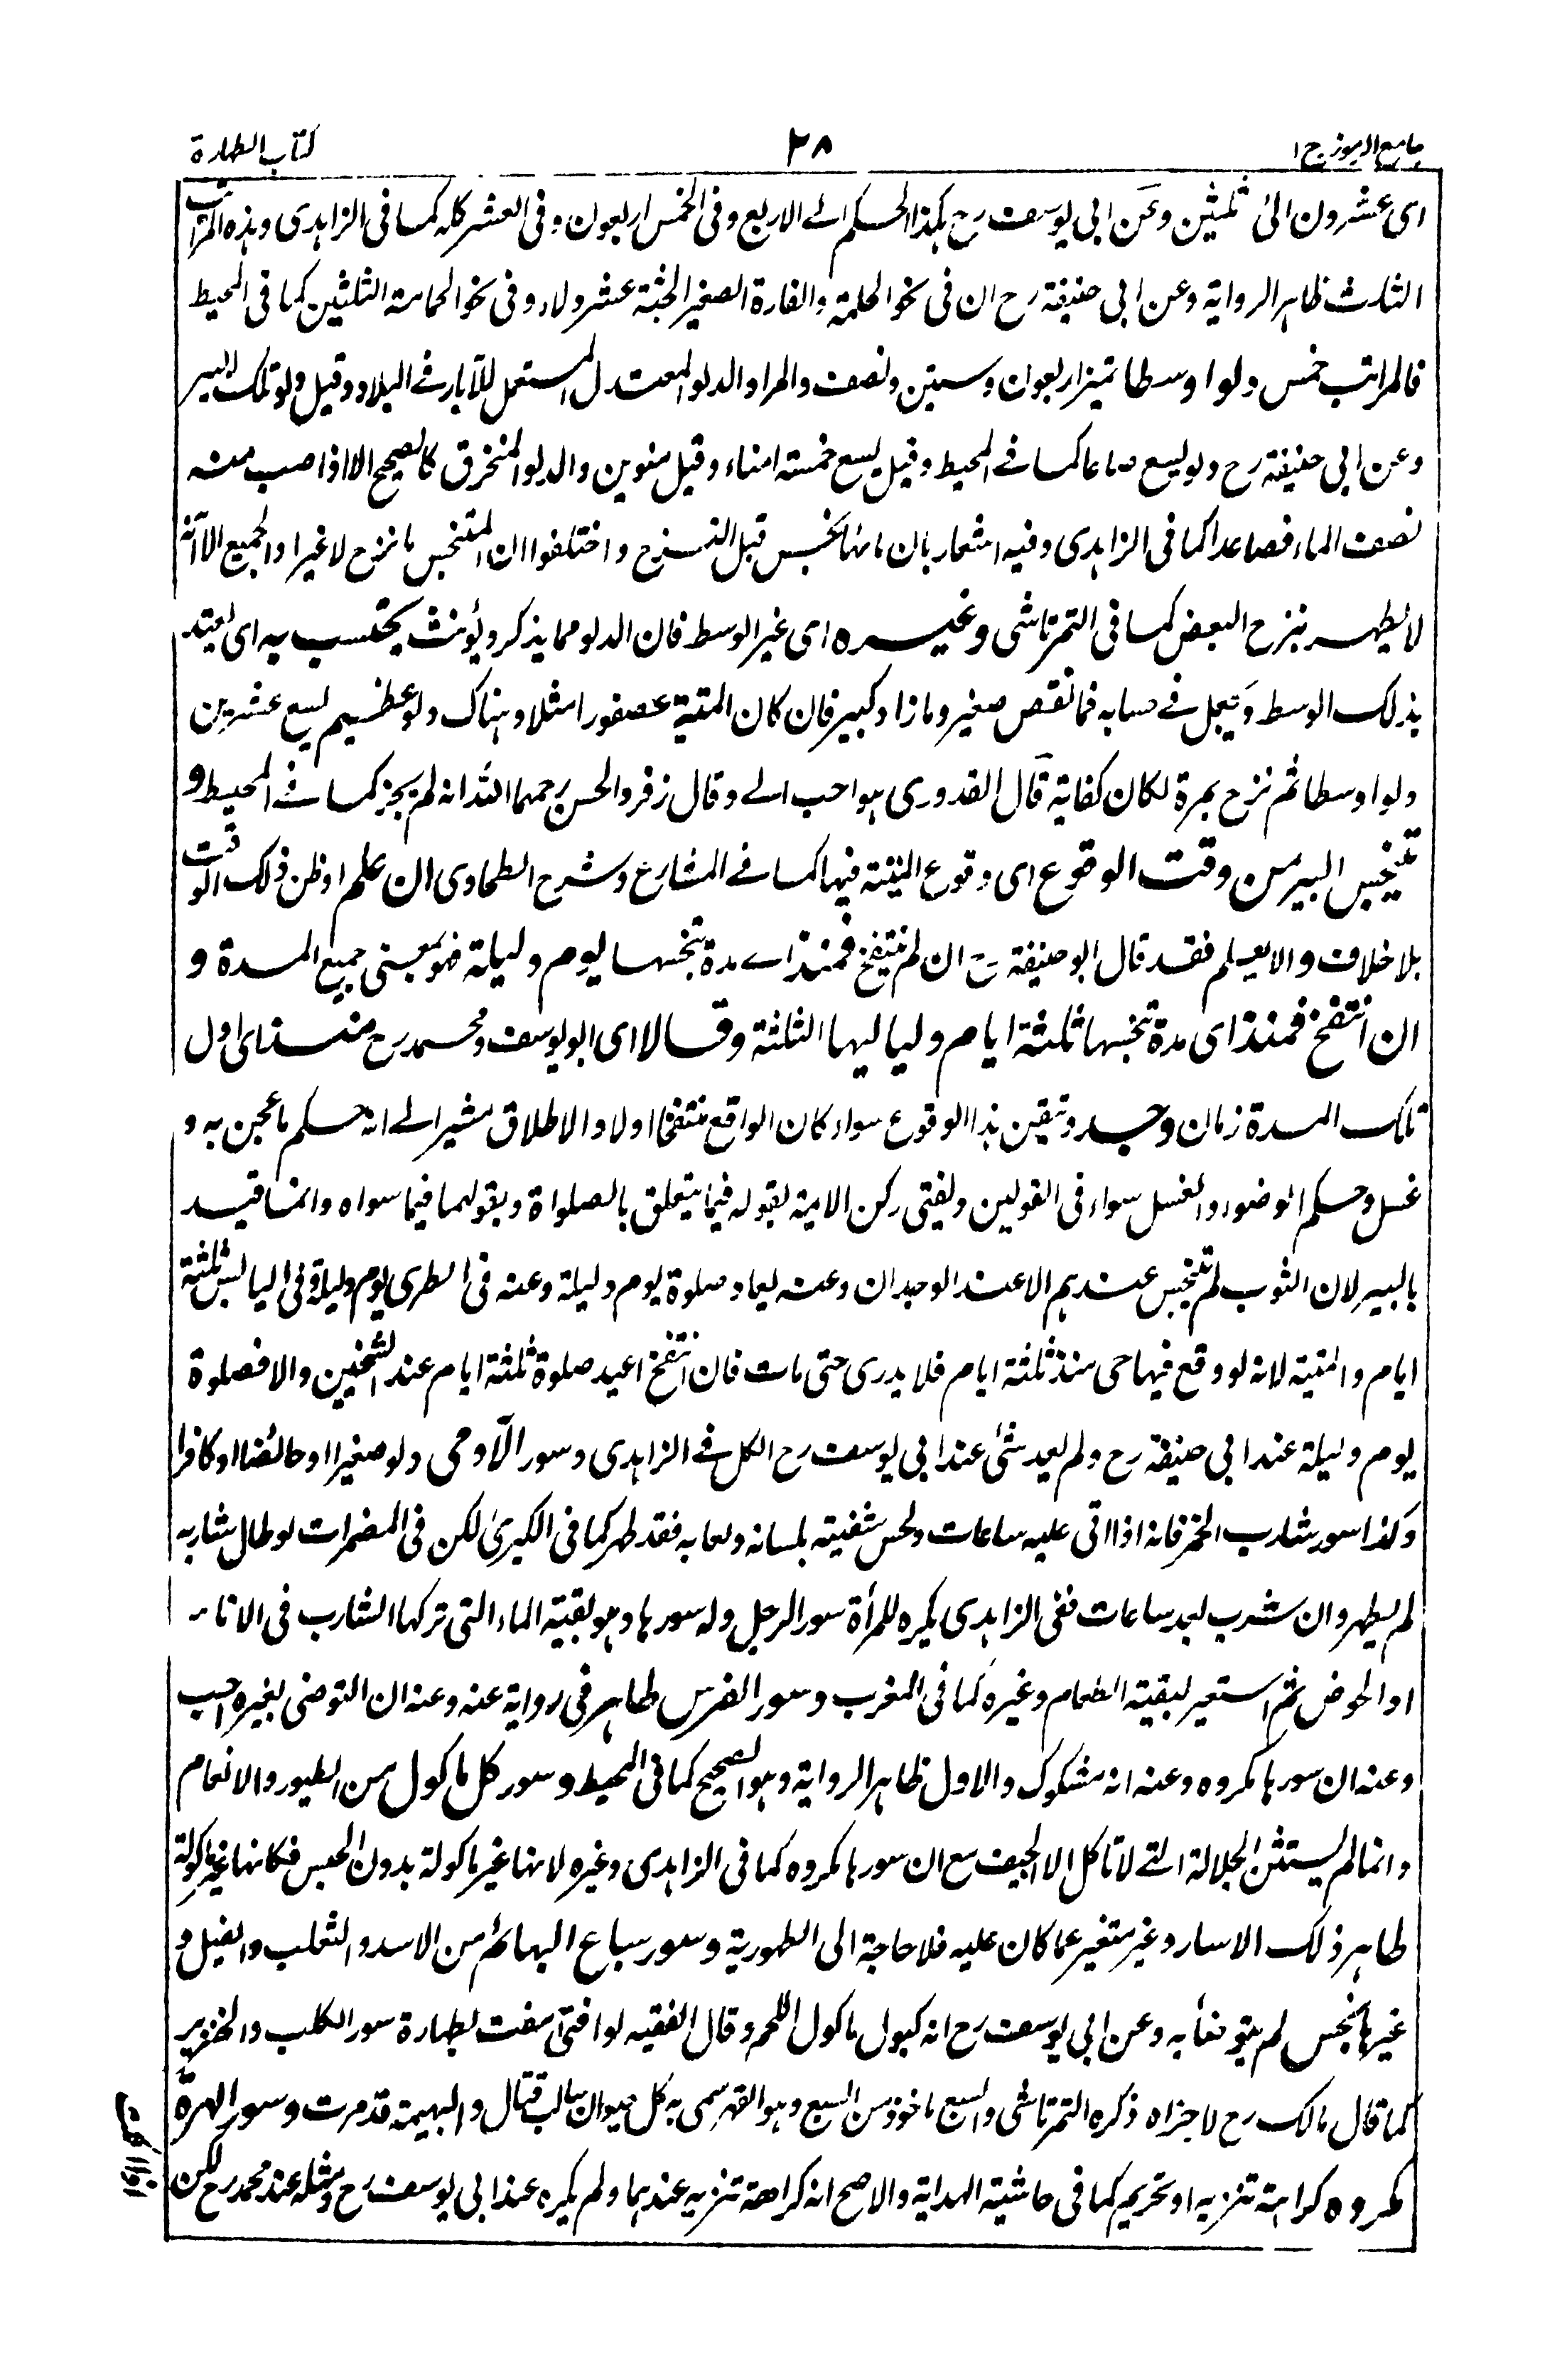 جامع الرموز ج ۱
۲۸
كتاب الطهارة
اى عشرون الى ثلثين وعن ابى يوسف رح هكذا الحكم الى الاربع وفى الخمس اربعون وفى العشر كله كما فى الزاهدى وهذه المراتب
الثلث ظاهر الرواية وعن ابى حنيفة رح ان فى نحو الحلمة والفارة الصغير الجثة عشر ولاء وفى نحو الحمامة الثلثين كما فى المحيط
فالمراتب خمس دلوا وسطا تميز اربعون وستين ونصف والمراد الدلو المعتدل المستعمل للآبار فى البلاد وقيل دلو تلك البير
وعن ابى حنيفة رح دلو يسع صاعا كما فى المحيط وقيل يسع خمسة امناء وقيل منوين والدلو المنخرق كالصحيح الا اذا صب منه
نصف الماء فصاعدا كما فى الزاهدى وفيه اشعار بان ماءها نجس قبل النزح واختلفوا ان المتنجس ما نزح لا غير او الجميع الا انه
لا يطهر بنزح البعض كما فى التمرتاشى وغيره اى غير الوسط فان الدلو مما يذكر ويؤنث يحتسب به اى يعتد
بذلك الوسط ويجعل فى حسابه فما نقص صغير وما زاد كبير فان كان الميتة عصفورا مثلا وهناك دلو عظيم يسع عشرين
دلوا وسطا ثم نزح بمرة لكان كفاية قال القدورى هو احب الى وقال زفر والحسن رحمهما الله انه لم يجز كما فى المحيط و
تنجس البير من وقت الوقوع اى وقوع الميتة فيها كما فى المشارع وشرح الطحاوى ان علم او ظن ذلك الوقت
بلا خلاف والا يعلم فقد قال ابو حنيفة رح ان لم ينتفخ فمنذ اى مدة تنجسها يوم وليلة فهو بمعنى جميع المدة و
ان انتفخ فمنذ اى مدة تنجسها ثلثة ايام ولياليها الثلثة وقالا اى ابو يوسف ومحمد رح منذ اى اول
تلك المدة زمان وجد وتيقن هذا الوقوع سواء كان الواقع منتفخا او لا والاطلاق مشير الى انه حكم ما عجن به و
غسل وحكم الوضوء والغسل سواء فى القولين ويفتى ركن الايمة بقوله فيما يتعلق بالصلواة وبقولهما فيما سواه وانما قيد
بالبير لان الثوب لم يتنجس عندهم الا عند الوجدان وعنه يعاد صلوة يوم وليلة وعنه فى الطرى يوم وليلة وفى اليابس ثلثة
ايام والميتة لانه لو وقع فيها حى منذ ثلثة ايام فلا يدرى حتى مات فان انتفخ اعيد صلوة ثلثة ايام عند الشيخين والا فصلوة
يوم وليلة عند ابى حنيفة رح ولم يعد شئ عند ابى يوسف رح الكل فى الزاهدى وسور الآدمى ولو صغيرا او حائضا او كافرا
وكذا سور شارب الخمر فانه اذا اتى عليه ساعات ولحس شفتيه بلسانه ولعابه فقد طهر كما فى الكبرى لكن فى المضمرات لو طال شاربه
لم يطهر وان شرب بعد ساعات ففى الزاهدى يكره للمرأة سور الرجل وله سورها وهو بقية الماء التى تركها الشارب فى الاناء
او الحوض ثم استعير لبقية الطعام وغيره كما فى المغرب وسور الفرس طاهر فى رواية عنه وعنه ان التوضى بغيره احب
وعنه ان سورها مكروه وعنه انه مشكوك والاول ظاهر الرواية وهو الصحيح كما فى المحيط وسور كل ماكول من الطيور والانعام
وانما لم يستثن الجلالة التى لا تاكل الا الجيف مع ان سورها مكروه كما فى الزاهدى وغيره لانها غير ماكولة بدون الحبس فكانها غير ماكولة
طاهر ذلك الاسار وغير متغير عما كان عليه فلا حاجة الى الطهورية وسور سباع البهائم من الاسد والثعلب والفيل و
غيرها نجس لم يتوضأ به وعن ابى يوسف رح انه كبول ماكول اللحم وقال الفقيه لو افتى مفت بطهارة سور الكلب والخنزير
كما قال مالك رح لاجزاه ذكره التمرتاشى والسبع ماخوذ من السبع وهو القهر سمى به كل حيوان سالب قتال والبهيمة قد مرت وسور الهرة
مكروه كراهة تنزيه او تحريم كما فى حاشية الهداية والاصح انه كراهة تنزيه عندهما ولم يكره عند ابى يوسف رح ومثله عند محمد رح لكن